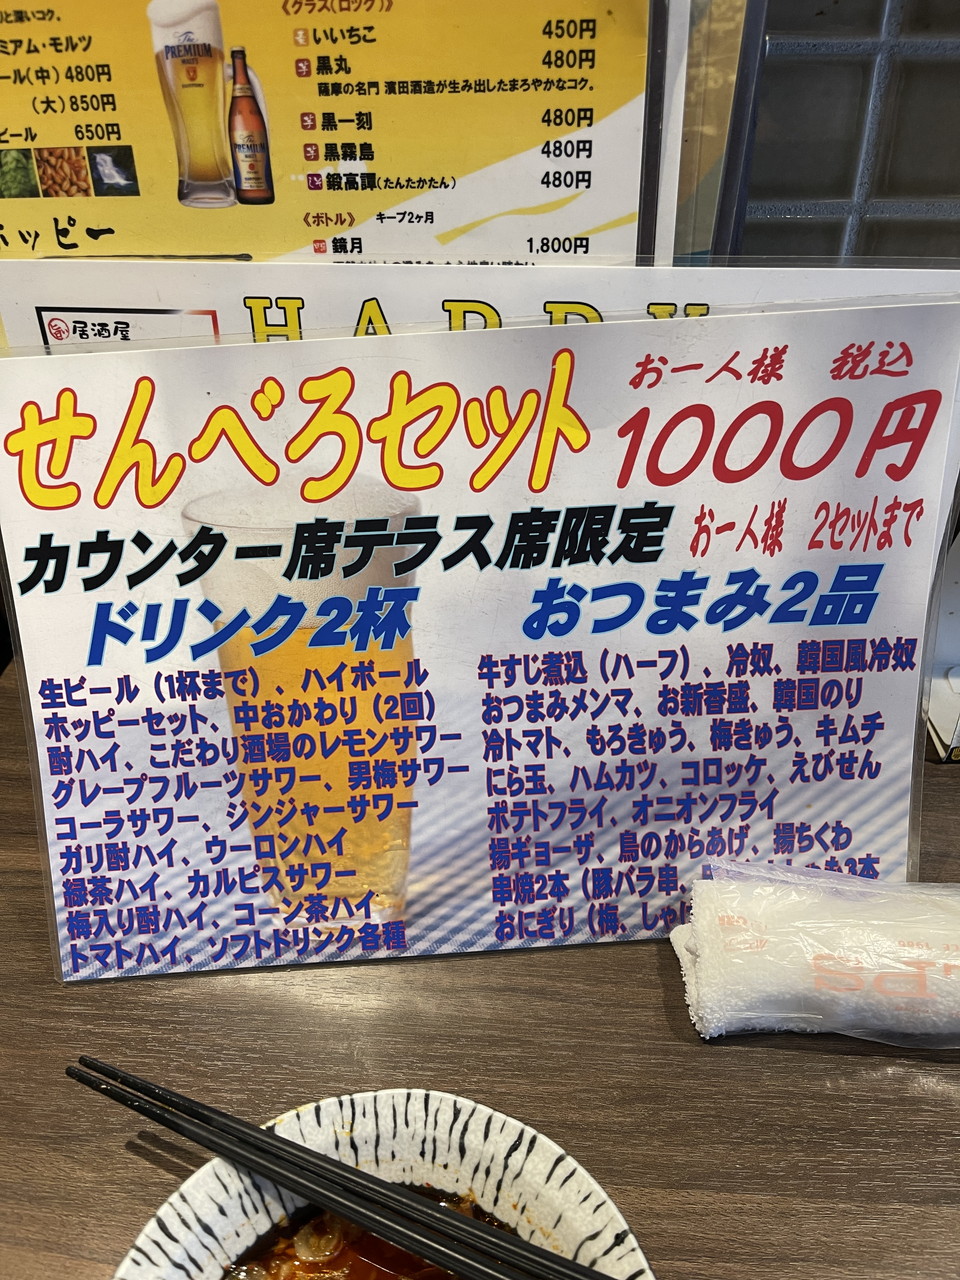 と深いコク。
ミアム・モルツ
ール(中) 480円
(大) 850円
ビール 650円
The PREMIUM MALT'S
ホッピー
《グラス(ロック)》
いいちこ 450円
黒丸 480円
薩摩の名門 濵田酒造が生み出したまろやかなコク。
黒一刻 480円
黒霧島 480円
鍛高譚(たんたかたん) 480円
《ボトル》 キープ2ヶ月
鏡月 1,800円
居酒屋
HAPPY
せんべろセット
お一人様 税込
1000円
カウンター席テラス席限定
お一人様 2セットまで
ドリンク2杯
生ビール（1杯まで）、ハイボール
ホッピーセット、中おかわり（2回）
酎ハイ、こだわり酒場のレモンサワー
グレープフルーツサワー、男梅サワー
コーラサワー、ジンジャーサワー
ガリ酎ハイ、ウーロンハイ
緑茶ハイ、カルピスサワー
梅入り酎ハイ、コーン茶ハイ
トマトハイ、ソフトドリンク各種
おつまみ2品
牛すじ煮込（ハーフ）、冷奴、韓国風冷奴
おつまみメンマ、お新香盛、韓国のり
冷トマト、もろきゅう、梅きゅう、キムチ
にら玉、ハムカツ、コロッケ、えびせん
ポテトフライ、オニオンフライ
揚ギョーザ、鳥のからあげ、揚ちくわ
串焼2本（豚バラ串、
おにぎり（梅、しゃけ